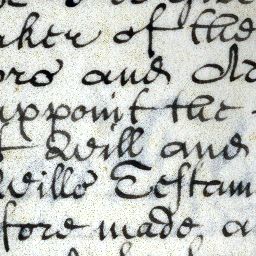 aker of the
ors and Or
appoint the
t Will and
Wills Testam
fore made a